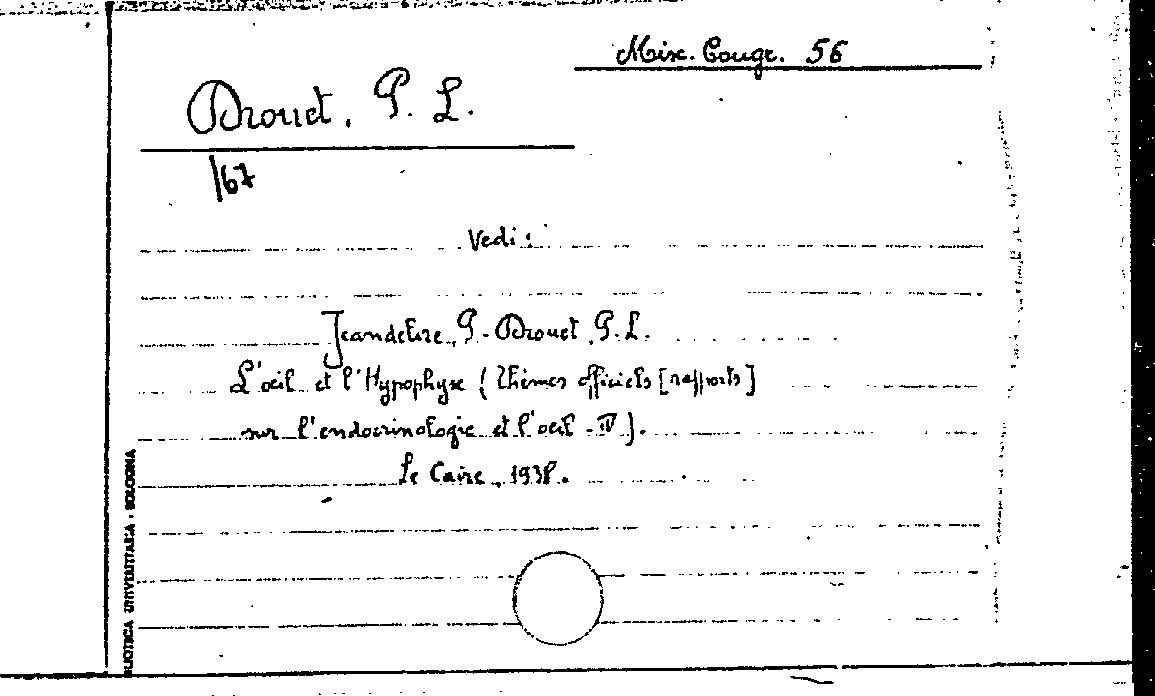 Misc. Congr. 56
Drouet, P. L.
167
Vedi:
Jeandelize, P. - Drouet, P. L.
L'oeil et l'Hypophyse (Thèmes officiels [rapports]
sur l'endocrinologie et l'oeil - IV).
Le Caire, 1938.
BLIOTECA UNIVERSITARIA - BOLOGNA